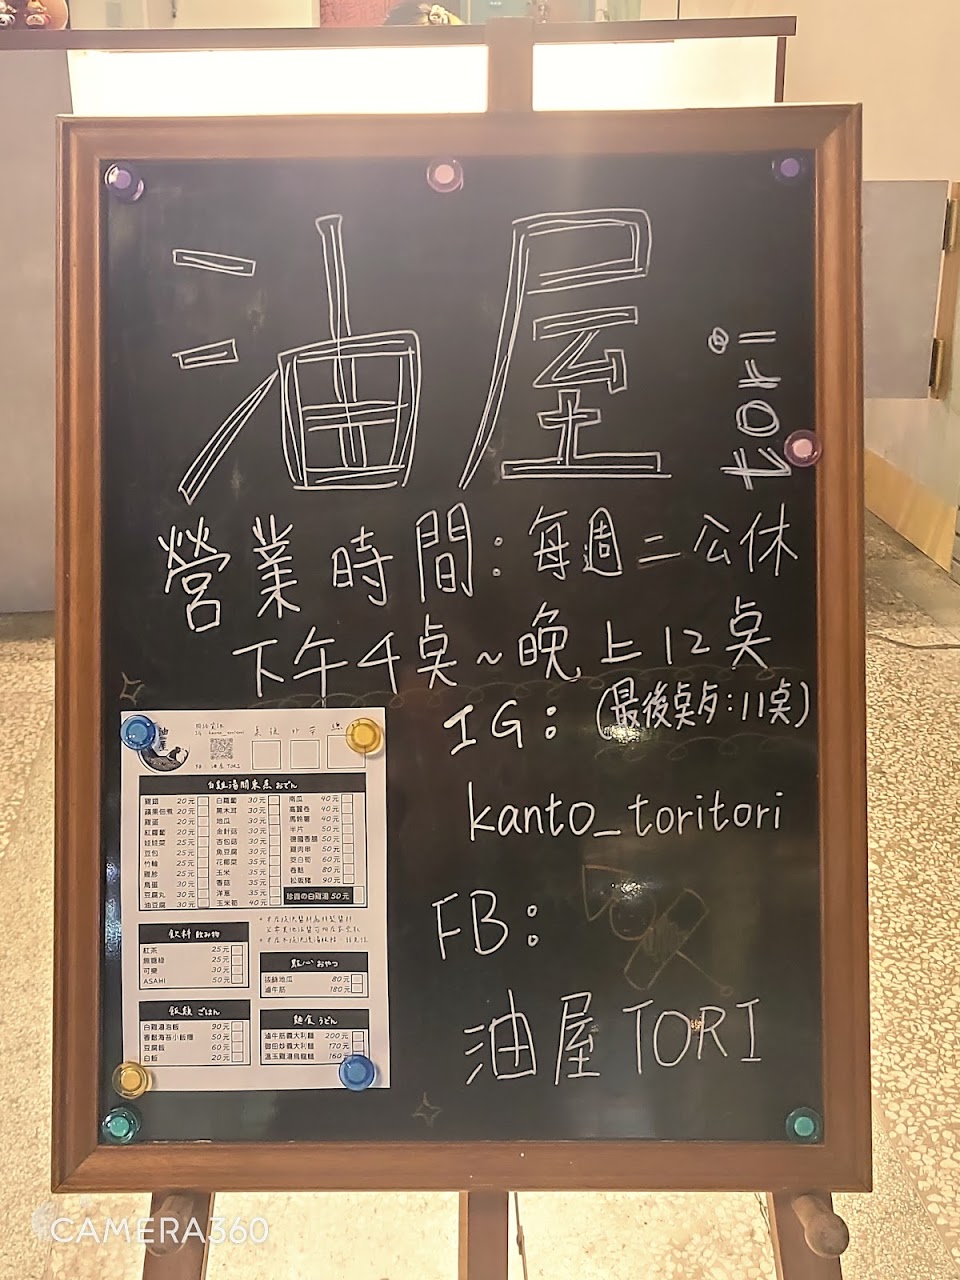 油屋
tori
營業時間：每週二公休
下午4桌~晚上12桌
(最後桌歺：11桌)
IG：
kanto_toritori
FB：
油屋 TORI
油屋
IG：kanto_toritori
FB：油屋 TORI
桌號
外帶
白雞湯關東煮 おでん
雞蛋 20元
紅蘿蔔 20元
娃娃菜 25元
豆包 25元
竹輪 25元
雞胗 25元
鳥蛋 30元
豆腐丸 30元
油豆腐 30元
白蘿蔔 30元
黑木耳 30元
地瓜 30元
金針菇 30元
杏包菇 30元
魚豆腐 30元
花椰菜 35元
玉米 35元
香菇 35元
洋蔥 35元
玉米筍 40元
南瓜 40元
高麗卷 40元
馬鈴薯 40元
半片 50元
德國香腸 50元
雞肉串 50元
茭白筍 60元
松阪豬 90元
珍貴の白雞湯 50元
飲料 飲み物
紅茶 25元
無糖綠 25元
可樂 30元
ASAHI 50元
點心 おやつ
拔絲地瓜 80元
滷牛筋 180元
飯類 ごはん
白雞湯泡飯 90元
香鬆海苔小飯糰 50元
豆腐飯 60元
白飯 20元
麵食 うどん
滷牛筋義大利麵 200元
御田炒義大利麵 170元
溫玉雞湯烏龍麵 160元
CAMERA360